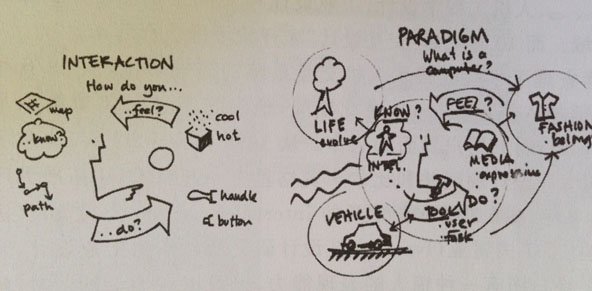 INTERACTION
How do you...
map
..feel?
cool
hot
..know?
path
handle
button
..do?
PARADIGM
What is a
computer?
KNOW?
FEEL?
LIFE
evolve
INTEL.
MEDIA
expressive
FASHION
belong
DO?
TOOL
user
task
VEHICLE